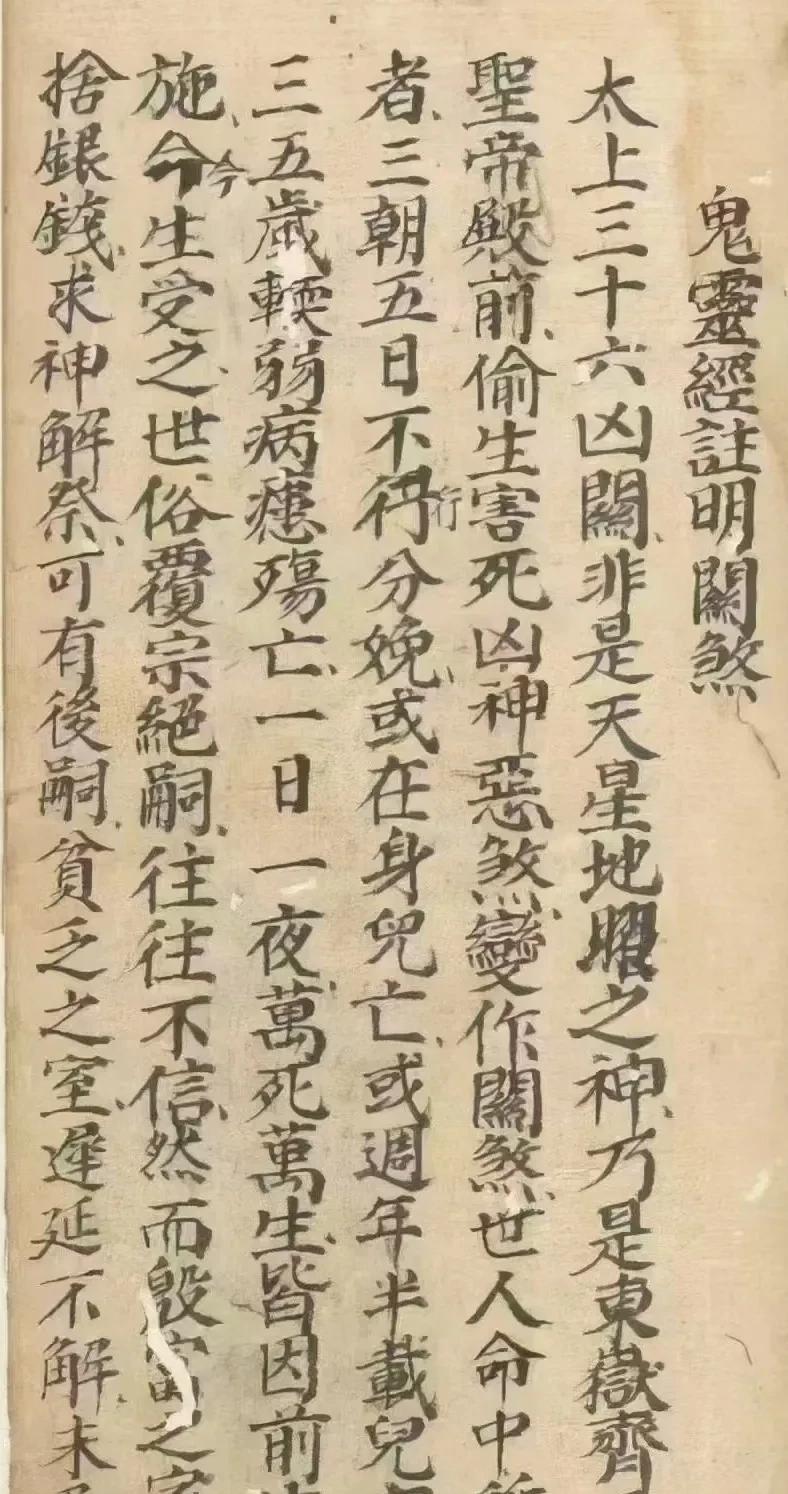 鬼靈經註明關煞
太上三十六凶關、非是天星地曜之神、乃是東嶽齊
聖帝殿前、偷生害死凶神惡煞、變作關煞、世人命中
者、三朝五日不行行分娩、或在身兒亡、或週年半載兒
三五歲輭弱病瘧殤亡、一日一夜、萬死萬生、皆因前
施、今今生受之、世俗覆宗絕嗣、往往不信、然而殷富之
捨銀錢、求神解祭、可有後嗣、貧乏之室、遲延不解、未